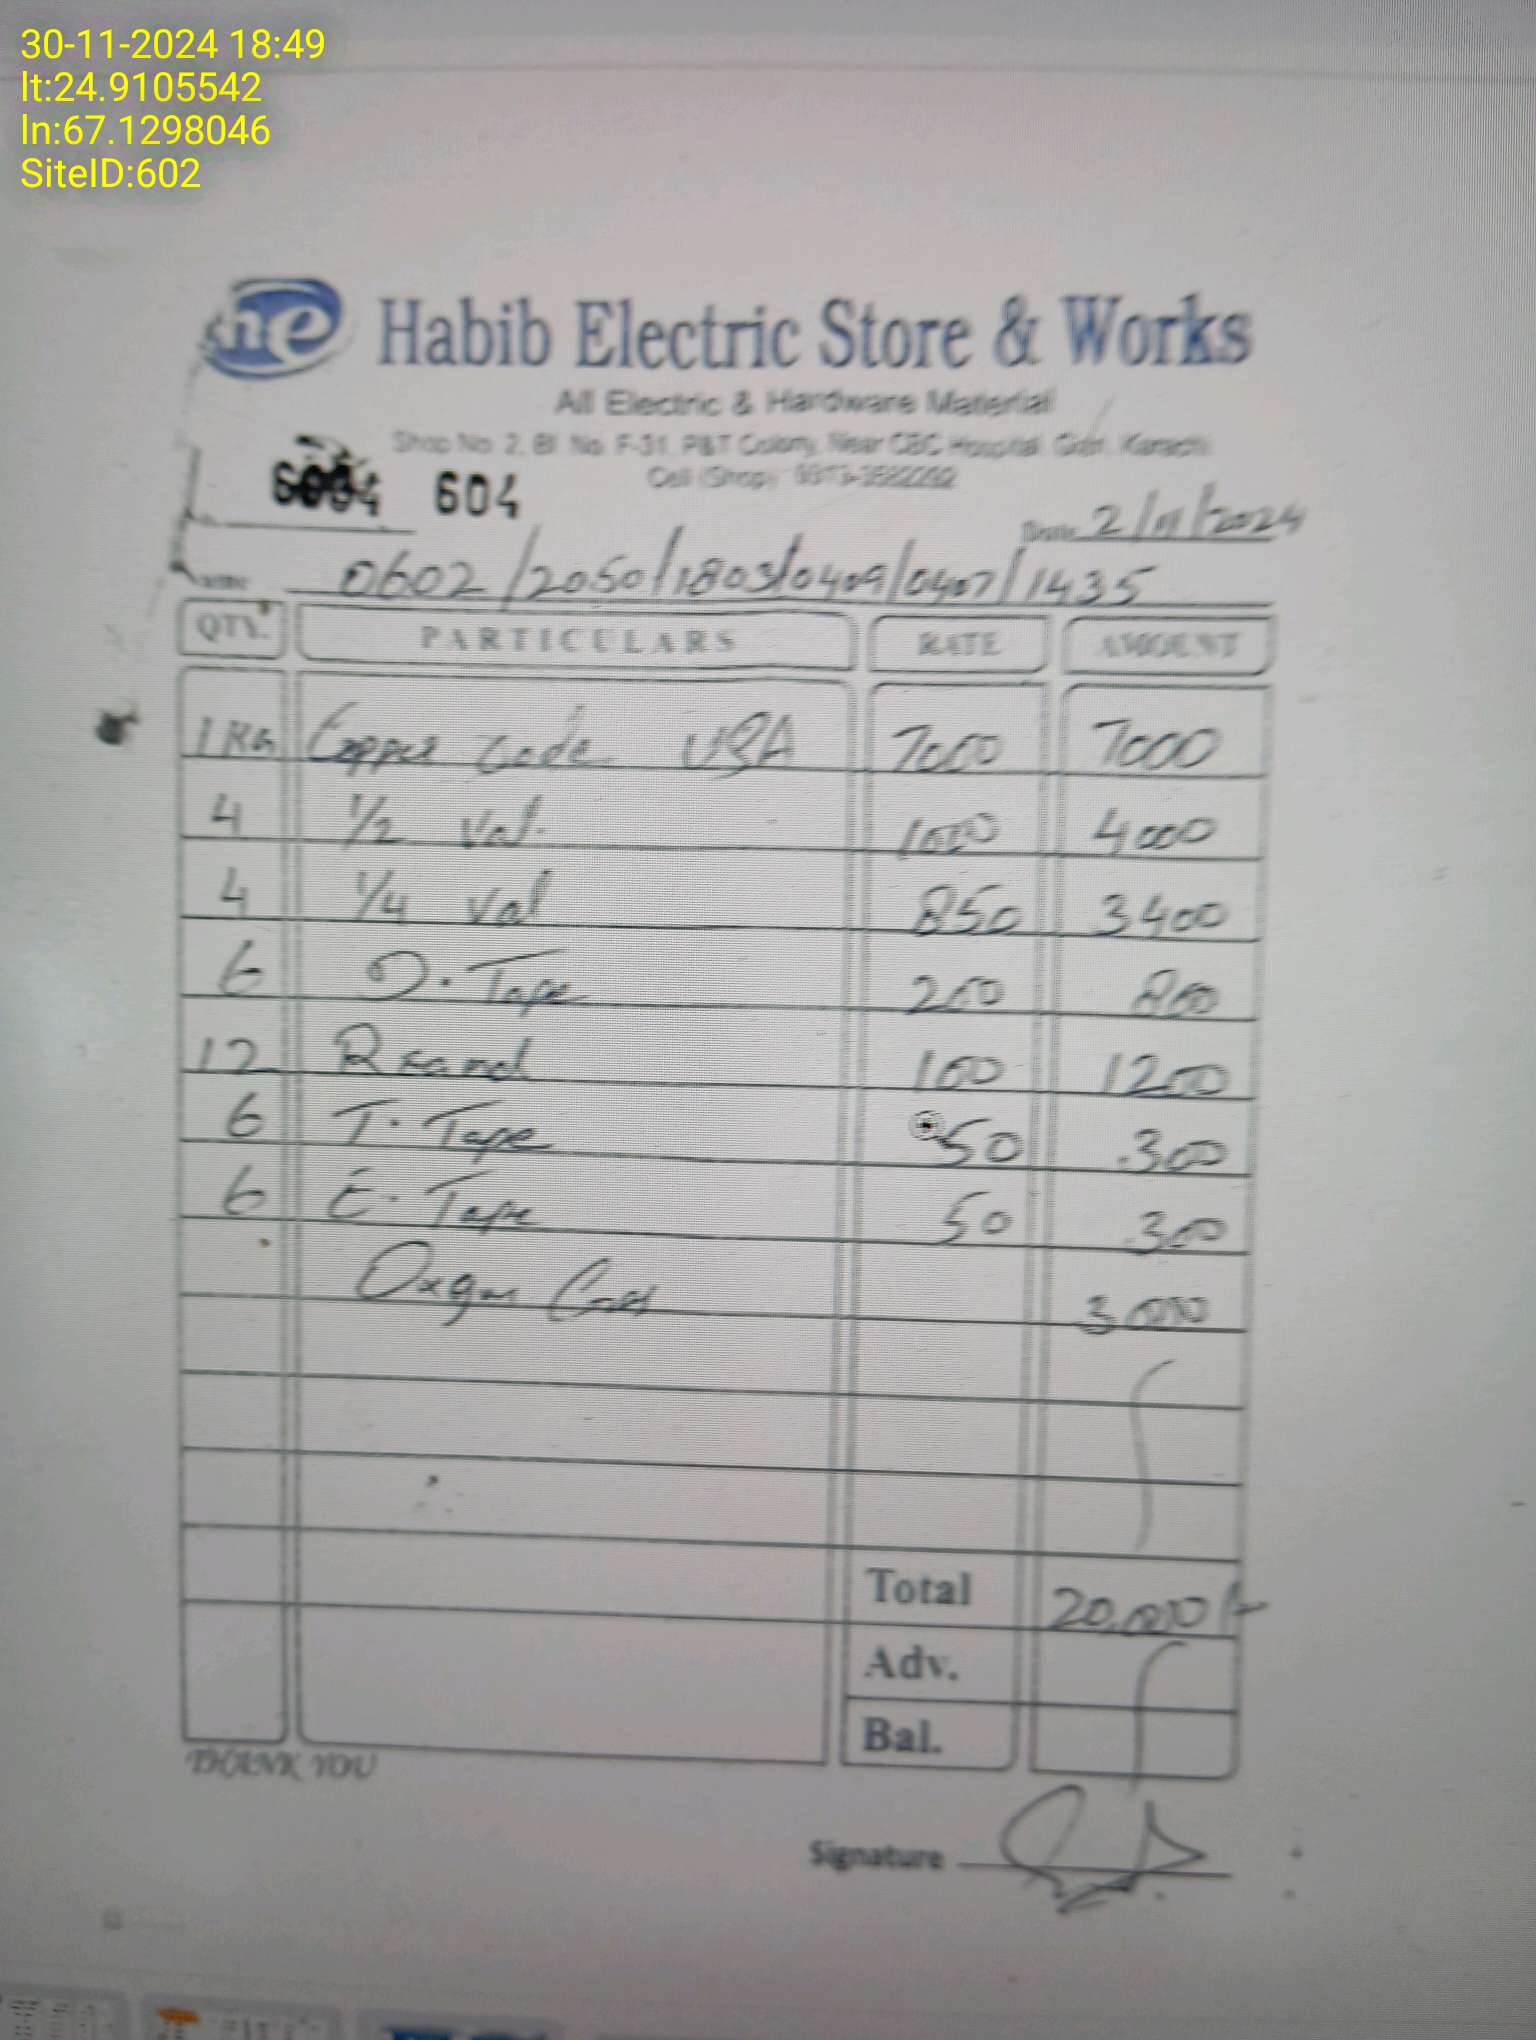 30-11-2024 18:49
lt:24.9105542
ln:67.1298046
SiteID:602
he Habib Electric Store & Works
All Electric & Hardware Material
Shop No. 2, Bl. No. F-31, P&T Colony, Near CBC Hospital, Karachi
Cell (Shop)
604
Date 2/11/2024
Name 0602/2050/1803/0409/0407/1435
QTY. PARTICULARS RATE AMOUNT
1 KG Copper USA 7000 7000
4 1/2 Val. 1000 4000
4 1/4 Val 850 3400
6 D. Tape 200 800
12 100 1200
6 T. Tape 50 300
6 E. Tape 50 300
3000
Total 20,000/-
Adv.
Bal.
THANK YOU
Signature